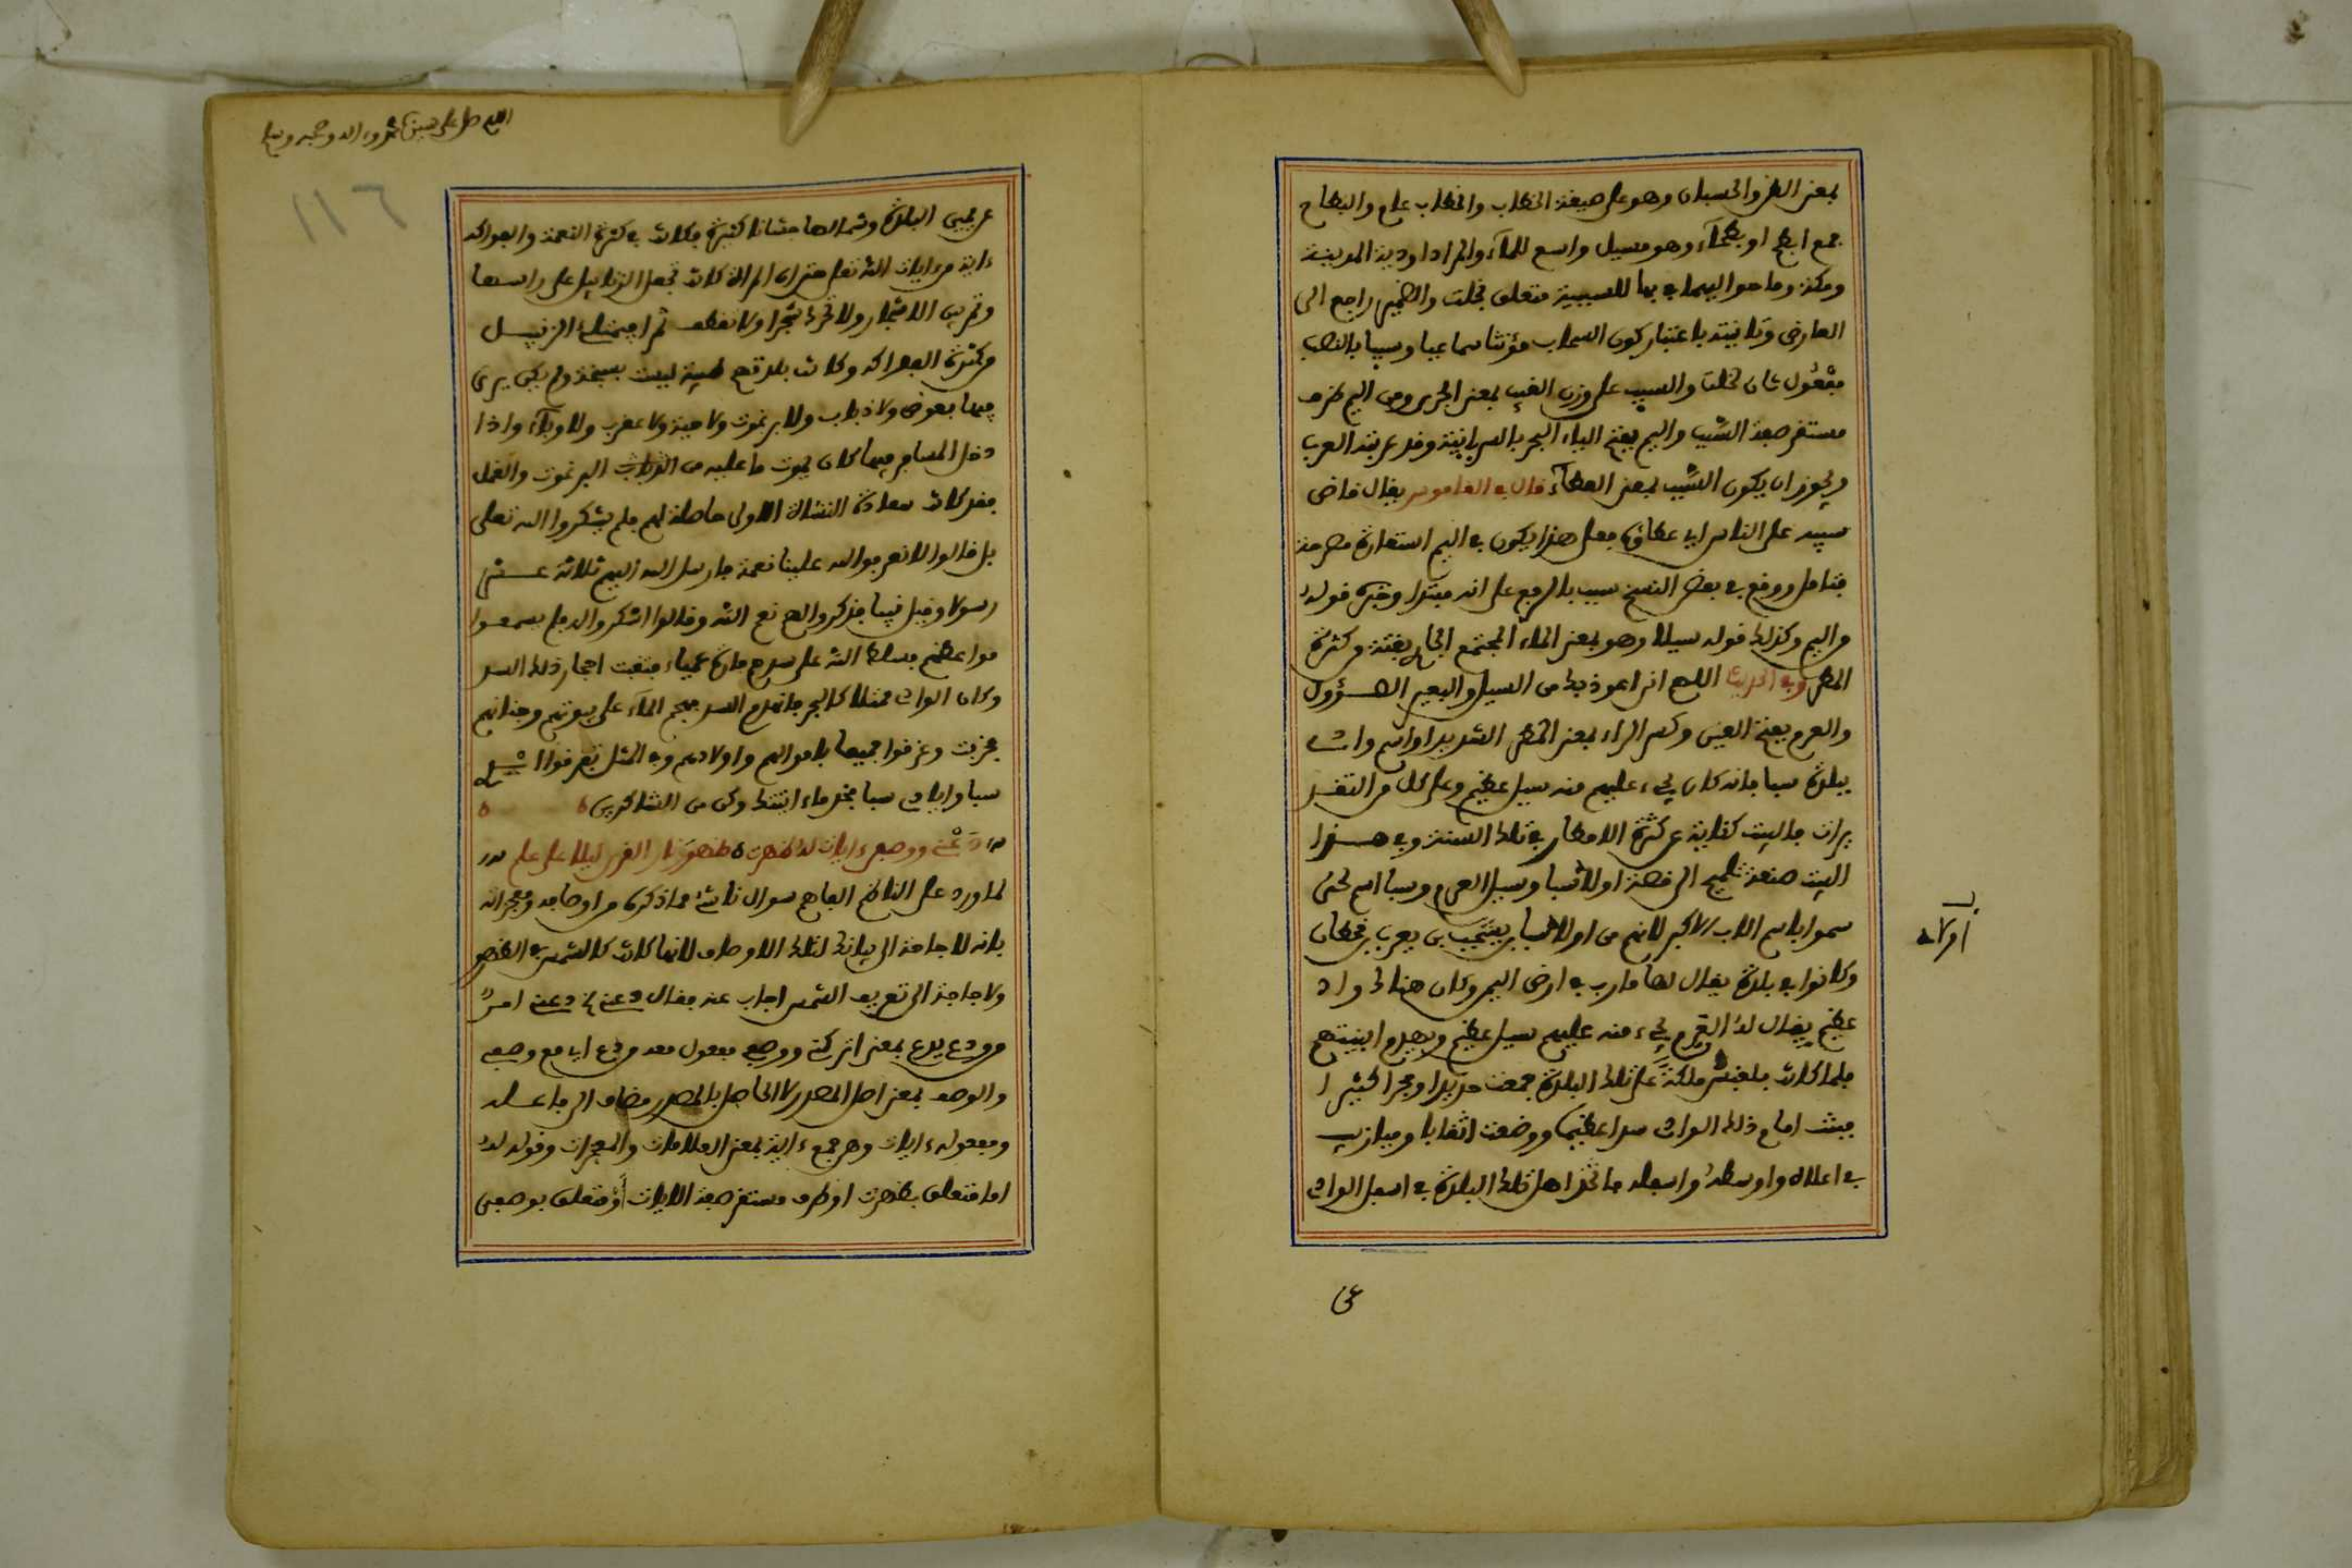 بمعنى الظن والحسبان وهو على صيغة الخطاب والخطاب عام والبطاح
جمع ابطح او بطحآء وهو مسيل واسع للمآء والمراد اودية المدينة
ومكة وما حواليهما في بها للسببية متعلق بخلت والضمير راجع الى
العارض وتانيثه باعتبار كون السحاب مؤنثا سماعيا وسيبا بالنصب
مفعول ثان لخلت والسيب على وزن الغيب بمعنى الجرى ومن اليم ظرف
مستقر صفة السّيب واليم بفتح الياء البحر بالسريانية وقد عربته العرب
ويجوز ان يكون السَّيب بمعنى العطآء قال في القاموس يقال فاض
سيبه على الناس اي عطاؤه فعلى هذا يكون في اليم استعارة مصرحة
فتامل ووقع في بعض النسخ سيب بالرفع على انه مبتدا وخبره قوله
من اليم وكذلك قوله سيلا وهو بمعنى الماء المجتمع الجاري بغتة من كثرة
المطر وفي الحديث اللهم اني اعوذ بك من السيل والبعير الصؤول
والعرم بفتح العين وكسر الراء بمعنى المطر الشديد او اسم واد
ببلدة سبا فانه كان يجيء عليهم منه سيل عظيم وعلى كل من التقد
يرات فالبيت كناية عن كثرة الامطار في تلك السنة وفي هذا
البيت صنعة تلميح الى قصة اولاد سبا وسيل العرم وسبا اسم لحى
سموا باسم الاب الاكبر لانهم من اولاد سبا بن يشجب بن يعرب بن قحطان
وكانوا في بلدة يقال لها مارب في ارض اليمن وكان هناك واد
عظيم يقال له العرم يجيء منه عليهم سيل عظيم ويهدم ابنيتهم
فلما كانت بلقيس ملكة على تلك البلدة جمعت حديدا وحجرا كثيرا
فبنت امام ذلك الوادى سدا عظيما ووضعت اثقابا وميازيب
في اعلاه واوسطه واسفله فاتخذ اهل تلك البلدة في اسفل الوادى
اولاد
عن
اللهم صل على سيدنا محمد وءاله وصحبه وسلم
١١٦
عن يمين البلدة وشمالها جنانا كثيرة فكانت في كثرة النعمة والفواكه
ءاية من ءايات الله تعلى حتى ان المراة كانت تجعل الزنابيل على راسها
وتمر بين الاشجار ولا تحرك شجرا ولا تقطف ثمرا فيمتلئ الزنبيل
من كثرة الفواكه وكانت بلدتهم طيبة ليست بسبخة ولم يكن يرى
فيها بعوض ولا ذباب ولا برغوث ولا حية ولا عقرب ولا وبآء واذا
دخل المسافر فيها كان يموت ما عليه من الذباب البرغوث والقمل
فقد كانت سعادة النشاة الاولى حاصلة لهم فلم يشكروا الله تعلى
بل قالوا لا نعرف لله علينا نعمة فارسل الله اليهم ثلاثة عشر
رسولا وقيل نبيا فذكروا لهم نعم الله وقالوا اشكروا له فلم يسمعوا
مواعظهم فسلط الله على سدهم فارة عمياء فنقبت احجار ذلك السد
وكان الوادى ممتلا كالبحر فانهدم السد فهجم المآء على بيوتهم وجناتهم
فخربت وغرقوا جميعا باموالهم واولادهم وفي المثل تفرقوا
سبا وايادي سبا فخذ ماء اتيتك وكن من الشاكرين
دَعْنى ووصفى ءايات له ظهرت ظهور نار القرى ليلا على علم
لما ورد على الناظم الفاهم سوال ناشئ مما ذكره من اوصافه ومعجزاته
بانه لا حاجة الى بيانك لتلك الاوصاف لانها كانت كالشمس في الظهور
ولا حاجة الى تعريف الشمس اجاب عنه فقال دعنى دعنى امر
من ودع يدع بمعنى اتركنى ووصفى مفعول معه من دع اي مع وصفى
والوصف بمعنى اصل المصدر لا الحاصل بالمصدر مضاف الى فاعله
ومفعوله ءايات وهى جمع ءاية بمعنى العلامات والمعجزات وقوله له
اما متعلق بظهرت او ظرف مستقر صفة الايات او متعلق بوصفى